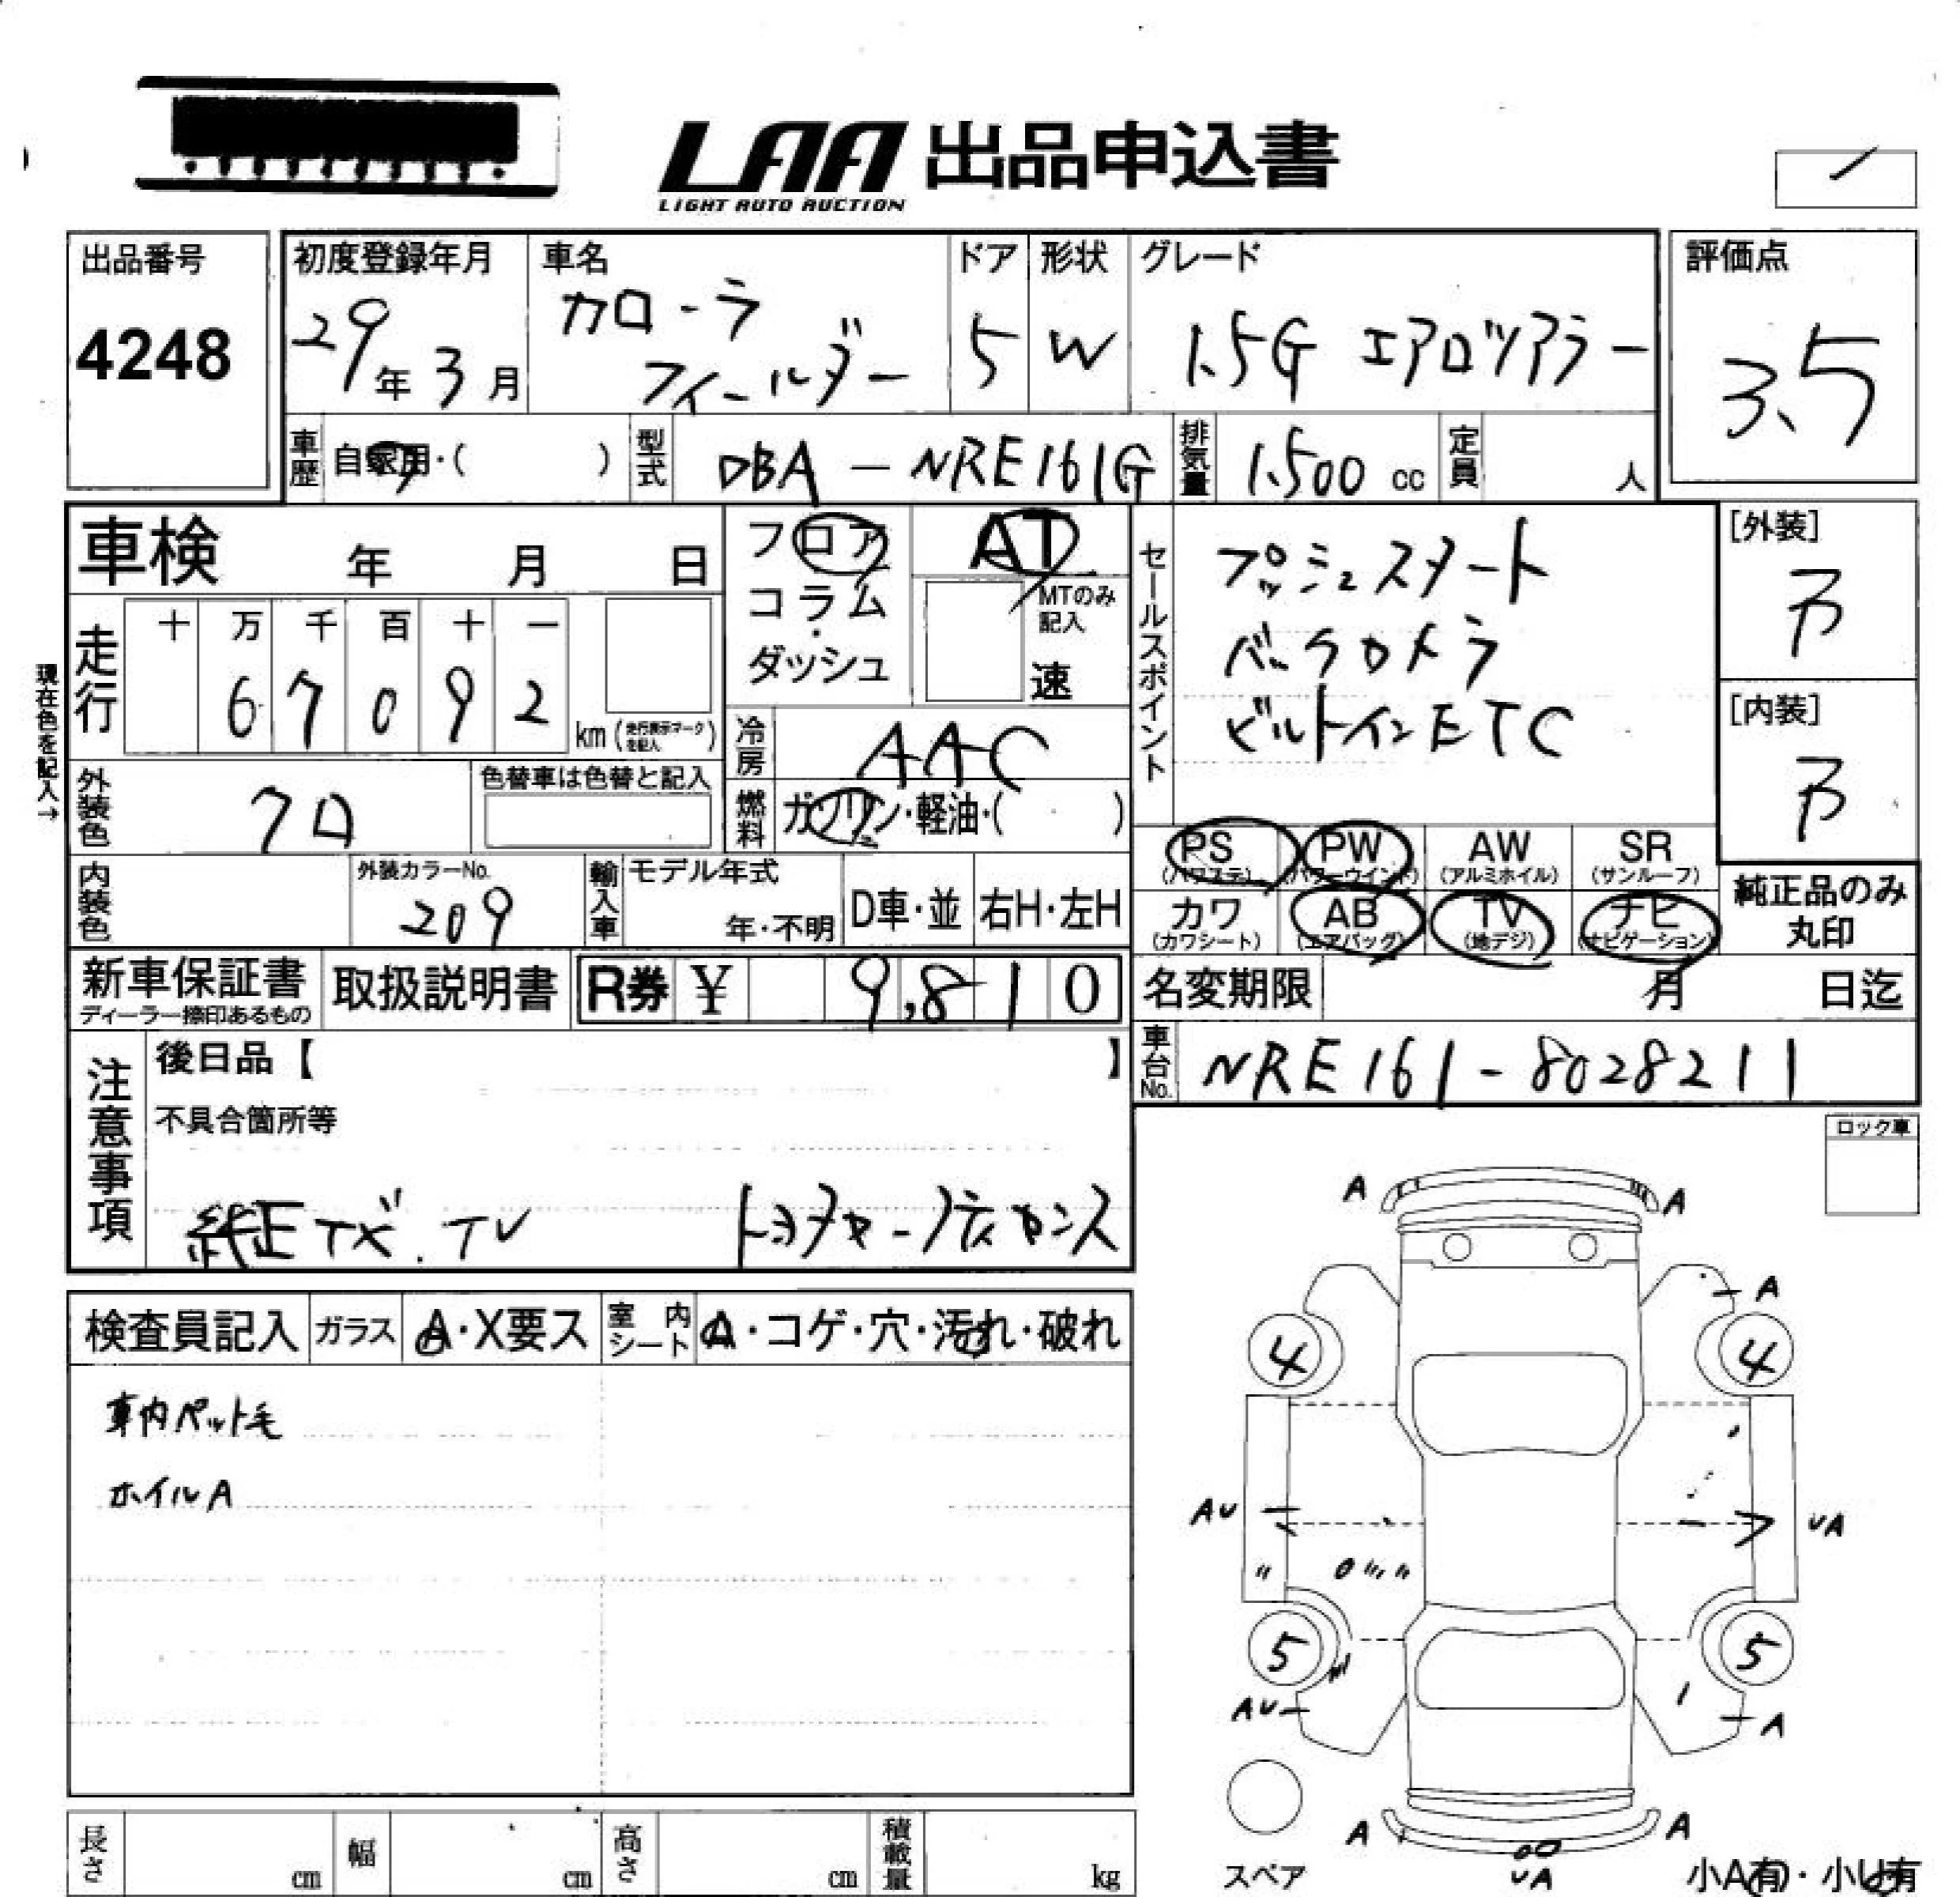 LAA 出品申込書
LIGHT AUTO AUCTION
出品番号
4248
初度登録年月
29年3月
車名
カローラ
フィールダー
ドア
5
形状
W
グレード
1.5G エアロツアラー
評価点
3.5
車歴 自家用・( )
型式 DBA-NRE161G
排気量 1.500 cc
定員 人
車検 年 月 日
フロア
コラム
・
ダッシュ
AT
MTのみ
記入
速
セールスポイント
プッシュスタート
バックカメラ
ビルトインETC
[外装]
B
[内装]
B
現在色を記入→
走行
十 万 千 百 十 一
6 7 0 9 2
km (走行表示マークを記入)
冷房 AAC
燃料 ガソリン・軽油・( )
外装色 クロ
色替車は色替と記入
内装色
外装カラーNo.
209
輸入車
モデル年式
年・不明
D車・並
右H・左H
PS
(パワステ)
PW
(パワーウインド)
AW
(アルミホイル)
SR
(サンルーフ)
カワ
(カワシート)
AB
(エアバッグ)
TV
(地デジ)
ナビ
(ナビゲーション)
純正品のみ
丸印
新車保証書
ディーラー捺印あるもの
取扱説明書
R券 ¥ 9,810
名変期限 月 日迄
車台No. NRE161-8028211
注意事項
後日品【 】
不具合箇所等
純正 TV
ロック車
検査員記入
ガラス A・X要ス
室内シート A・コゲ・穴・汚れ・破れ
車内ペット毛
ホイルA
A A
A
4 4
AU UA
5 5
AU A
A A
UA
スペア
小A有・小U有
長さ cm
幅 cm
高さ cm
積載量 kg